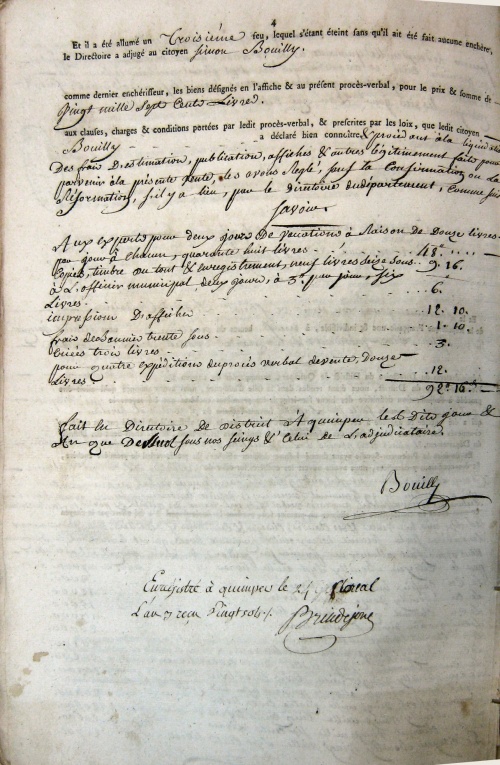 4
Et il a été allumé un Troisième feu, lequel s'étant éteint sans qu'il ait été fait aucune enchère,
le Directoire a adjugé au citoyen Simon Bouilly.
comme dernier enchérisseur, les biens désignés en l'affiche & au présent procès-verbal, pour le prix & somme de
Vingt mille Sept Cents Livres.
aux clauses, charges & conditions portées par ledit procès-verbal, & prescrites par les loix, que ledit citoyen
Bouilly a déclaré bien connoître, & procédant à la liquidation
Des frais D'estimation, publication, affiches & autres légitimement faits pour
parvenir à la présente Vente, les avons Réglé, sauf la Confirmation ou la
Réformation, s'il y a lieu, par le directoire du département, Comme suit
Savoir
Aux experts pour deux jours De vacations à Raison de Douze livres
par jour à Chacun, quarante huit livres 48.
Copies, timbre du tout & enregistrement, neuf livres Seize Sous 9. 16.
à L'officier municipal deux jours, à 3.# par jour, six
Livres 6.
impression D'affiches 12. 10.
frais de bannies trente sous 1. 10.
Criées trois livres 3.
pour quatre expéditions du procès verbal de vente, Douze
Livres 12.
92. 16.
fait En Directoire De District A quimper les Dits jour &
An que Devant sous nos seings & Celui de L'adjudicataire.
Bouilly
Enregistré à quimper le 24 floreal
L'an 3 reçu Vingt sols.